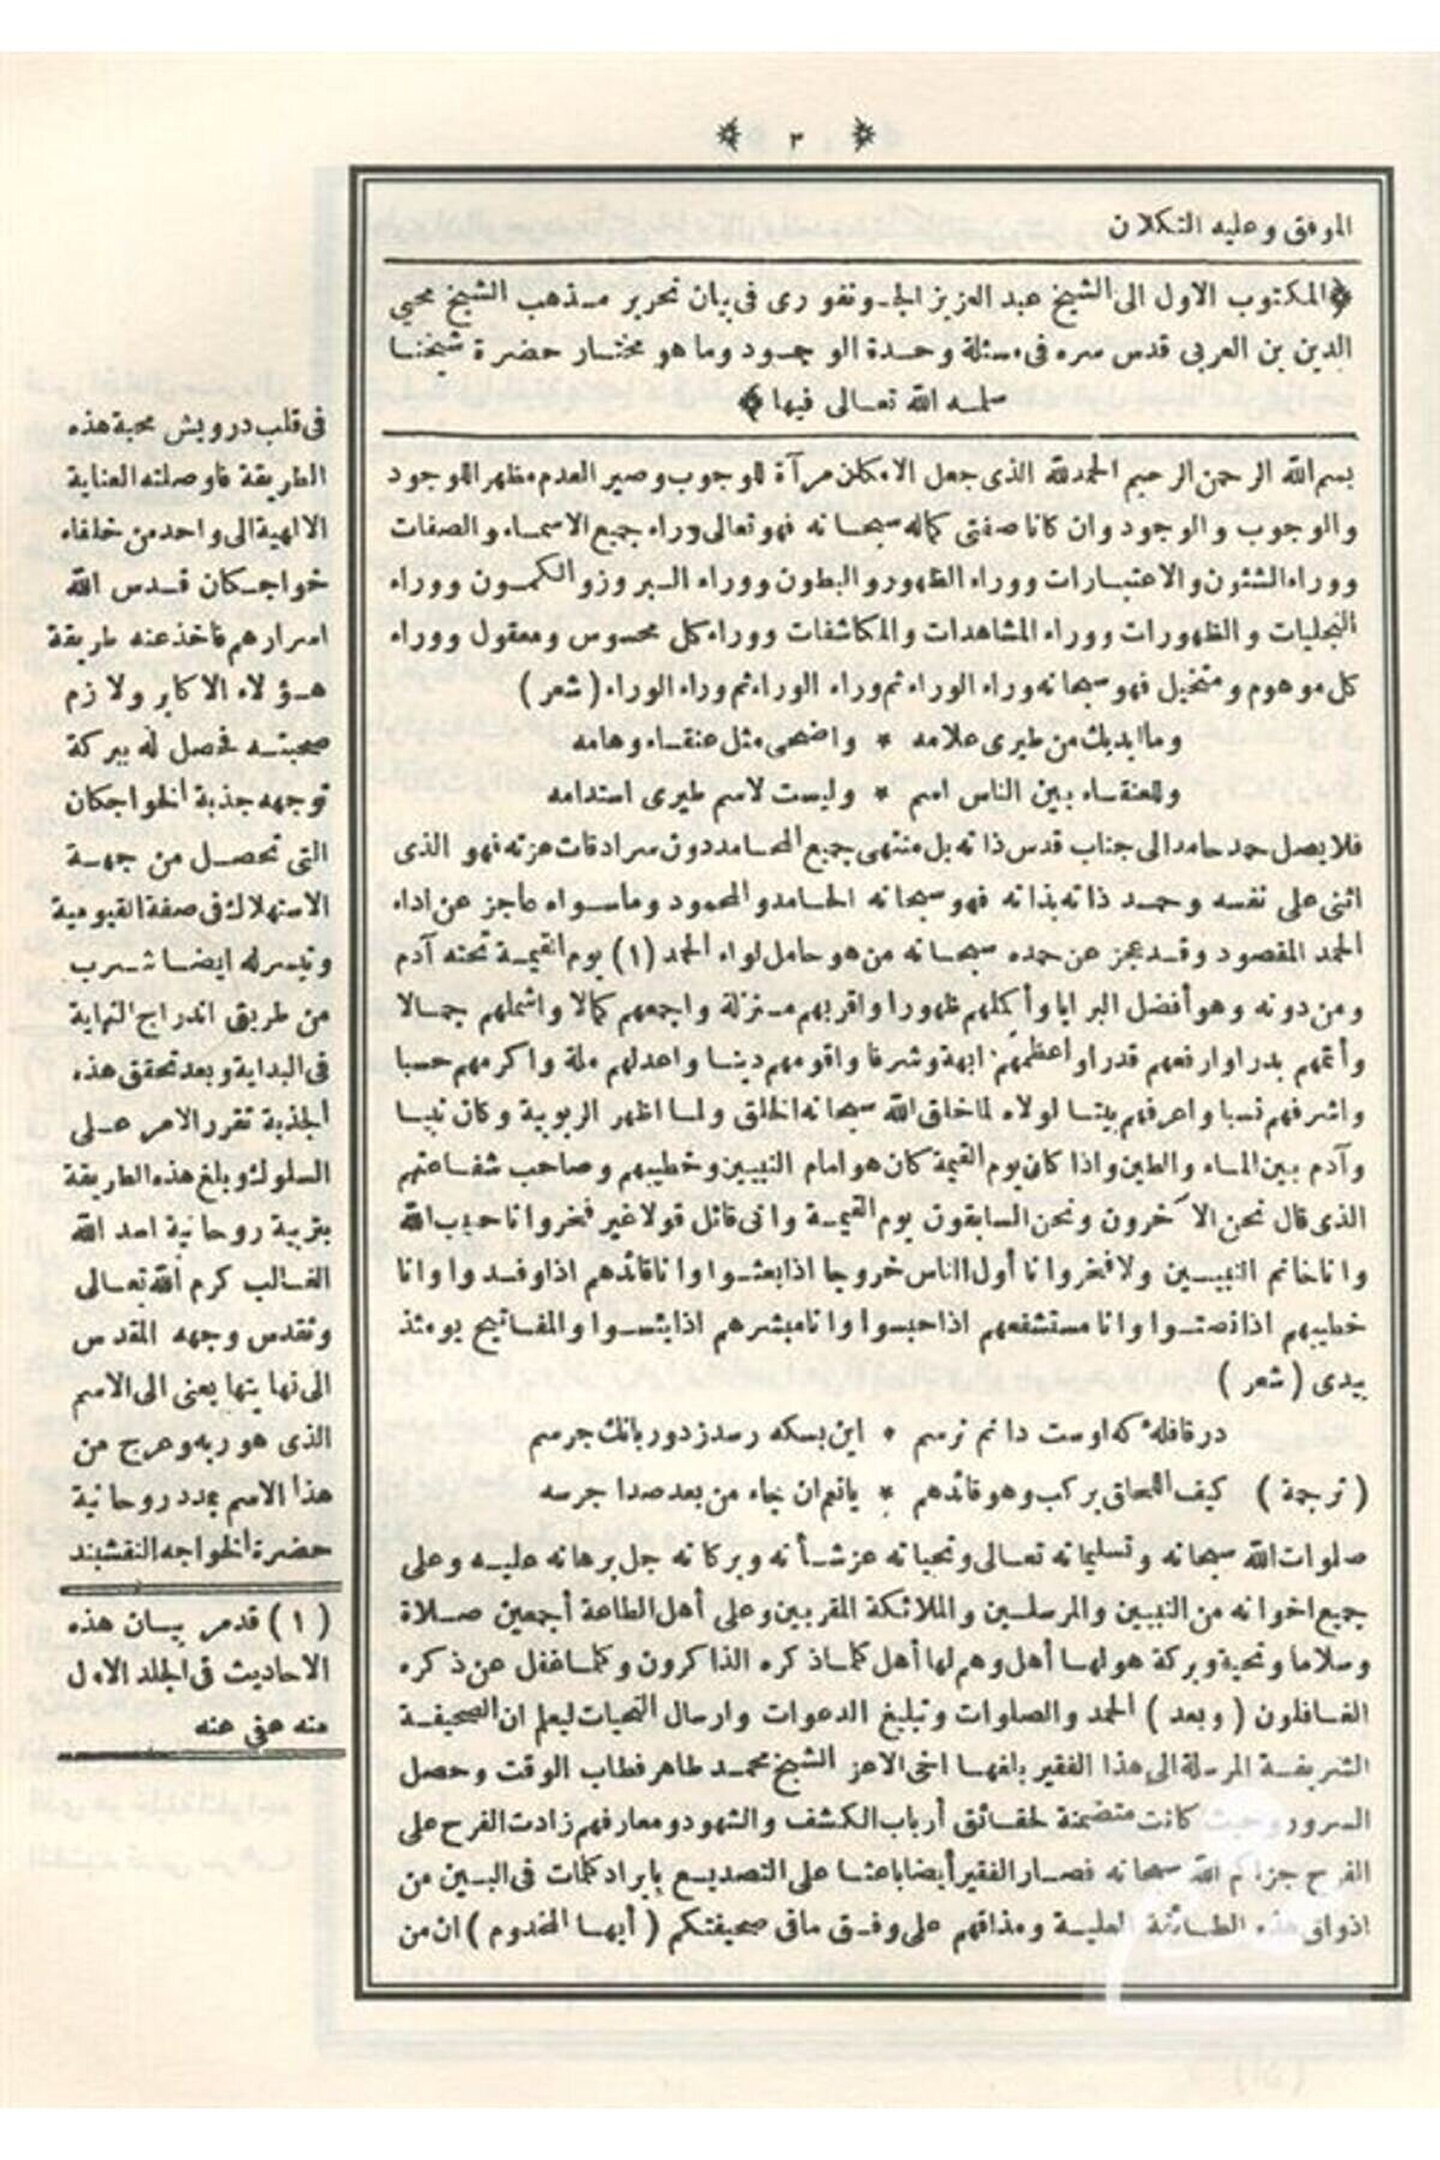 ٣
الموفق وعليه التكلان
المكتوب الاول الى الشيخ عبد العزيز الجونفورى فى بيان تحرير مذهب الشيخ محيي
الدين بن العربى قدس سره فى مسئلة وحدة الوجود وما هو مختار حضرة شيخنا
سلمه الله تعالى فيها
بسم الله الرحمن الرحيم الحمدلله الذى جعل الامكان مرآة للوجوب وصير العدم مظهرا للوجود
والوجوب والوجود وان كانا صفتى كماله سبحانه فهو تعالى وراء جميع الاسماء والصفات
ووراء الشئون والاعتبارات ووراء الظهور والبطون ووراء البروز والكمون ووراء
التجليات والظهورات ووراء المشاهدات والمكاشفات ووراء كل محسوس ومعقول ووراء
كل موهوم ومتخيل فهو سبحانه وراء الوراء ثم وراء الوراء ثم وراء الوراء (شعر)
وما ابديك من طيرى علامه * واضحى مثل عنقاء وهامه
وللعنقاء بين الناس اسم * وليست لاسم طيرى استدامه
فلا يصل حمد حامد الى جناب قدس ذاته بل منتهى جميع المحامد دون سرادقات عزته فهو الذى
اثنى على نفسه وحمد ذاته بذاته فهو سبحانه الحامد والمحمود وماسواه عاجز عن اداء
الحمد المقصود وقد عجز عن حمده سبحانه من هو حامل لواء الحمد (١) يوم القيمة تحته آدم
ومن دونه وهو أفضل البرايا وأكملهم ظهورا واقربهم منزلة واجمعهم كمالا واشملهم جمالا
وأتمهم بدرا وارفعهم قدرا واعظمهم ابهة وشرفا واقومهم دينا واعدلهم ملة واكرمهم حسبا
واشرفهم نسبا واعرفهم بيتا لولاه لما خلق الله سبحانه الخلق ولما اظهر الربوبية وكان نبيا
وآدم بين الماء والطين واذا كان يوم القيمة كان هو امام النبيين وخطيبهم وصاحب شفاعتهم
الذى قال نحن الآخرون ونحن السابقون يوم القيمة وانى قائل قولا غير فخر وانا حبيب الله
وانا خاتم النبيين ولا فخر وانا أول الناس خروجا اذا بعثوا وانا قائدهم اذا وفدوا وانا
خطيبهم اذا نصتوا وانا مستشفعهم اذا حبسوا وانا مبشرهم اذا يئسوا والمفاتيح يومئذ
بيدى (شعر)
در قافلهٔ كه اوست دانم نرسم * اين بسكه رسد زدور بانك جرسم
(ترجمة) كيف اللحاق بركب وهو قائدهم * ياتيم ان جاء من بعد صدا جرسه
صلوات الله سبحانه وتسليماته تعالى وتحياته عز شأنه وبركاته جل برهانه عليه وعلى
جميع اخوانه من النبيين والمرسلين والملائكة المقربين وعلى أهل الطاعة أجمعين صلاة
وسلاما وتحية وبركة هو لها أهل وهم لها أهل كلما ذكره الذاكرون وكلما غفل عن ذكره
الغافلون (وبعد) الحمد والصلوات وتبليغ الدعوات وارسال التحيات ليعلم ان الصحيفة
الشريفة المرسلة الى هذا الفقير بلغها اخى الاعز الشيخ محمد طاهر فطاب الوقت وحصل
السرور وحيث كانت متضمنة لحقائق أرباب الكشف والشهود ومعارفهم زادت الفرح على
الفرح جزاكم الله سبحانه فصار الفقير أيضا باعثا على التصديع بايراد كلمات فى البين من
اذواق هذه الطائفة العلية ومذاقهم على وفق مافى صحيفتكم (أيها المخدوم) ان من
فى قلب درويش محبة هذه
الطريقة فاوصلته العناية
الالهية الى واحد من خلفاء
خواجكان قدس الله
اسرارهم فاخذ عنه طريقة
هؤلاء الاكابر ولازم
صحبته فحصل له ببركة
توجهه جذبة الخواجكان
التى تحصل من جهة
الاستهلاك فى صفة القيومية
وتيسرله ايضا شرب
من طريق اندراج النهاية
فى البداية وبعد تحقق هذه
الجذبة تقرر الامر على
السلوك وبلغ هذه الطريقة
بتربية روحانية اسد الله
الغالب كرم الله تعالى
وتقدس وجهه المقدس
الى نهايتها يعنى الى الاسم
الذى هو ربه وعرج من
هذا الاسم بمدد روحانية
حضرة الخواجه النقشبند
(١) قدمر بيان هذه
الاحاديث فى الجلد الاول
منه عفى عنه